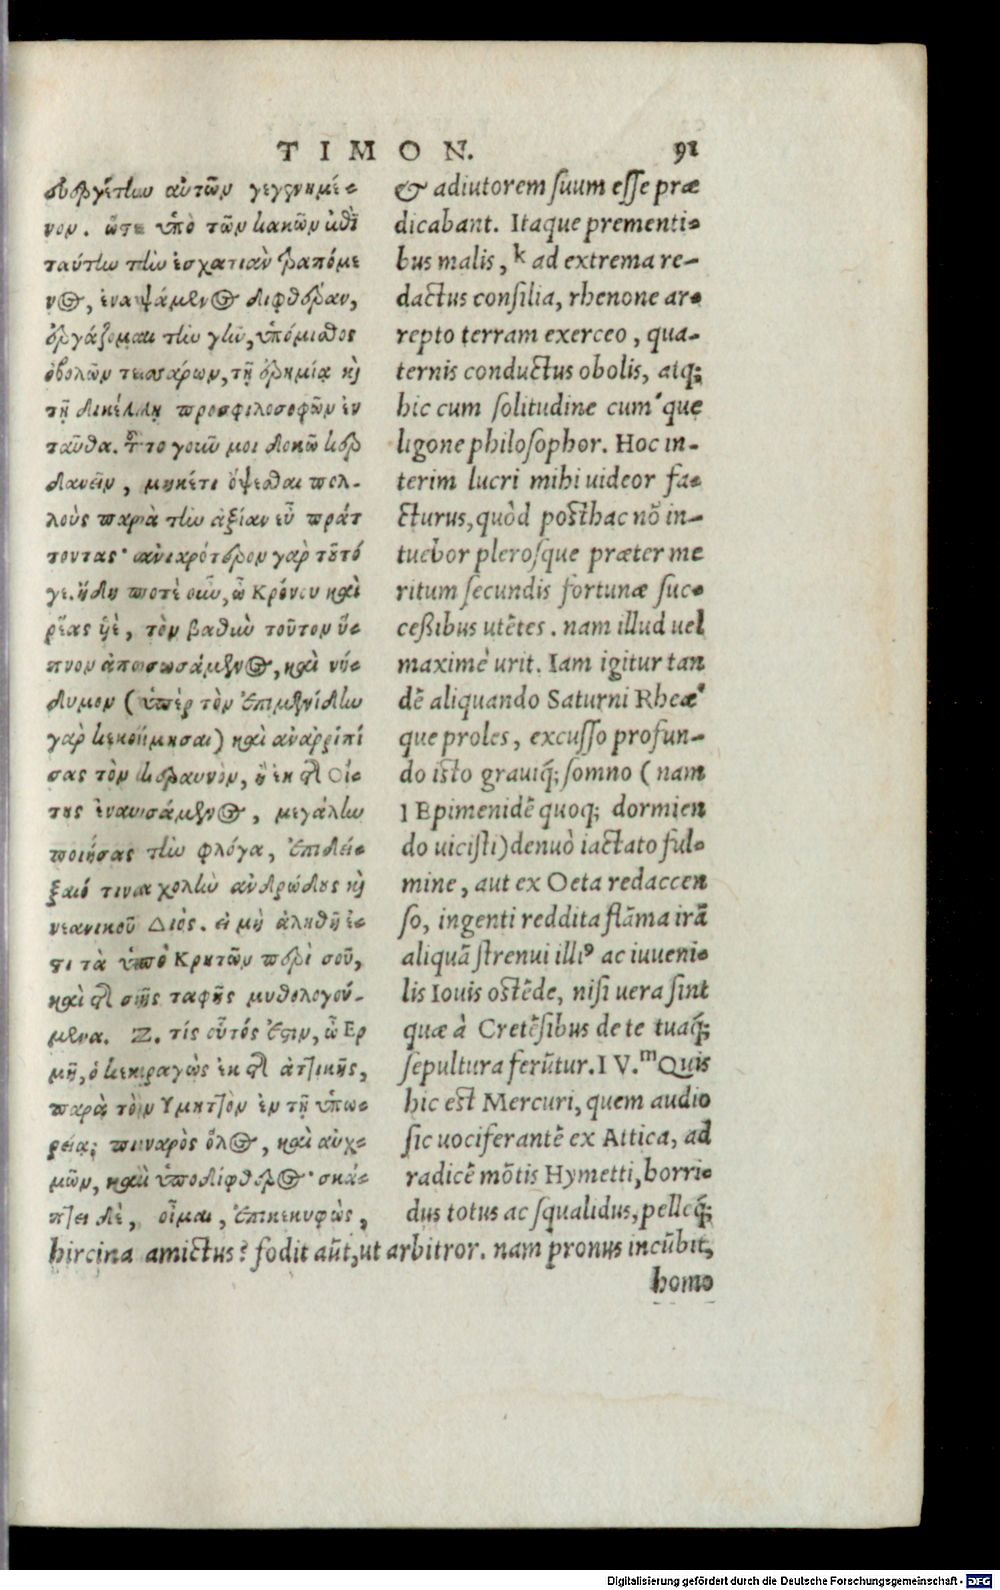 TIMON. 91
εὐεργέτην αὐτῶν γεγενημέ-
νον. ὥστε ὑπὸ τῶν κακῶν ἐπὶ
ταύτην τὴν ἐσχατιὰν τραπόμε
νος, ἐναψάμενος διφθέραν,
ἐργάζομαι τὴν γῆν, ὑπόμισθος
ὀβολῶν τεσσάρων, τῇ ἐρημίᾳ καὶ
τῇ δικέλλῃ προσφιλοσοφῶν ἐν
ταῦθα. τοῦτο γοῦν μοι δοκῶ κερ
δανεῖν, μηκέτι ὄψεσθαι πολ-
λοὺς παρὰ τὴν ἀξίαν εὖ πράτ
τοντας· ἀνιαρότερον γὰρ τοῦτό
γε. ἤδη ποτὲ οὖν, ὦ Κρόνου καὶ
ῥέας υἱὲ, τὸν βαθὺν τοῦτον ὕ-
πνον ἀποσεισάμενος, καὶ νή-
δυμον (ὑπὲρ τὸν Ἐπιμενίδην
γὰρ κεκοίμησαι) καὶ ἀναρριπί
σας τὸν κεραυνὸν, ἢ ἐκ τῆς Οἴ-
της ἐναυσάμενος, μεγάλην
ποιήσας τὴν φλόγα, ἐπιδεί-
ξαιό τινα χολὴν ἀνδρώδους καὶ
νεανικοῦ Διός. εἰ μὴ ἀληθῆ ἐ-
στι τὰ ὑπὸ Κρητῶν περὶ σοῦ,
καὶ τῆς σῆς ταφῆς μυθολογού-
μενα. Ζ. τίς οὗτός ἐστιν, ὦ Ερ
μῆ, ὁ κεκραγὼς ἐκ τῆς ἀττικῆς,
παρὰ τὸν Υμηττὸν ἐν τῇ ὑπω-
ρείᾳ; πιναρὸς ὅλος, καὶ αὐχ-
μῶν, καὶ ὑποδίφθερος· σκά-
πτει δὲ, οἶμαι, ἐπικεκυφὼς,
& adiutorem suum esse præ
dicabant. Itaque prementi-
bus malis, k ad extrema re-
dactus consilia, rhenone ar-
repto terram exerceo, qua-
ternis conductus obolis, atq;
hic cum solitudine cum'que
ligone philosophor. Hoc in-
terim lucri mihi uideor fa-
cturus, quòd posthac nō in-
tuebor plerosque præter me
ritum secundis fortunæ suc-
ceßibus utētes. nam illud uel
maximè urit. Iam igitur tan
dē aliquando Saturni Rheæ'
que proles, excusso profun-
do isto grauiq́; somno (nam
l Epimenidē quoq; dormien
do uicisti) denuò iactato ful-
mine, aut ex Oeta redaccen
so, ingenti reddita flāma irā
aliquā strenui illiꝰ ac iuueni-
lis Iouis ostēde, nisi uera sint
quæ à Cretēsibus de te tuaq́;
sepultura ferūtur. IV. m Quis
hic est Mercuri, quem audio
sic uociferantē ex Attica, ad
radicē mōtis Hymetti, horri-
dus totus ac squalidus, pelleq́;
hircina amictus? fodit aūt, ut arbitror. nam pronus incūbit,
homo
Digitalisierung gefördert durch die Deutsche Forschungsgemeinschaft - DFG